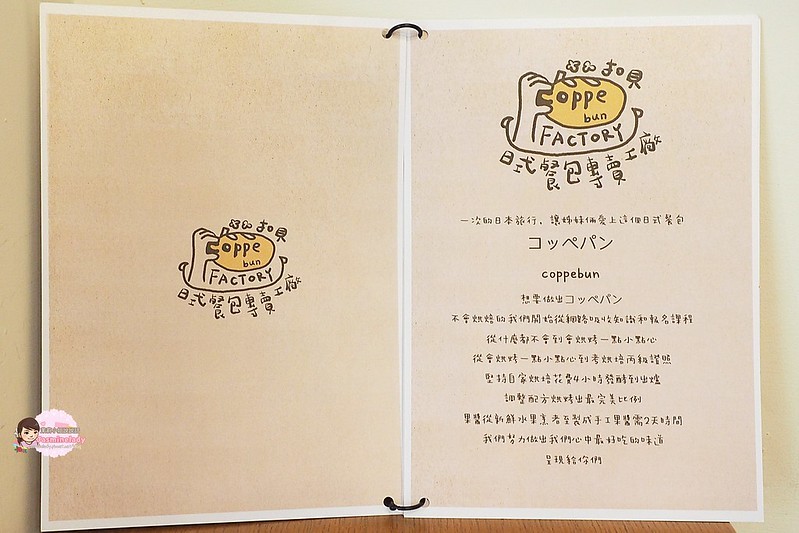 扣貝
Coppe
bun
FACTORY
日式餐包專賣工廠
Jasminelady
扣貝
Coppe
bun
FACTORY
日式餐包專賣工廠
一次的日本旅行、讓姊妹倆愛上這個日式餐包
コッペパン
coppebun
想要做出コッペパン
不會烘焙的我們開始從網路吸收知識和報名課程
從什麼都不會到會烘烤一點小點心
從會烘烤一點小點心到考烘焙丙級證照
堅持自家烘焙花費4小時發酵到出爐
調整配方烘烤出最完美比例
果醬從新鮮水果烹煮至製成手工果醬需2天時間
我們努力做出我們心中最好吃的味道
呈現給你們